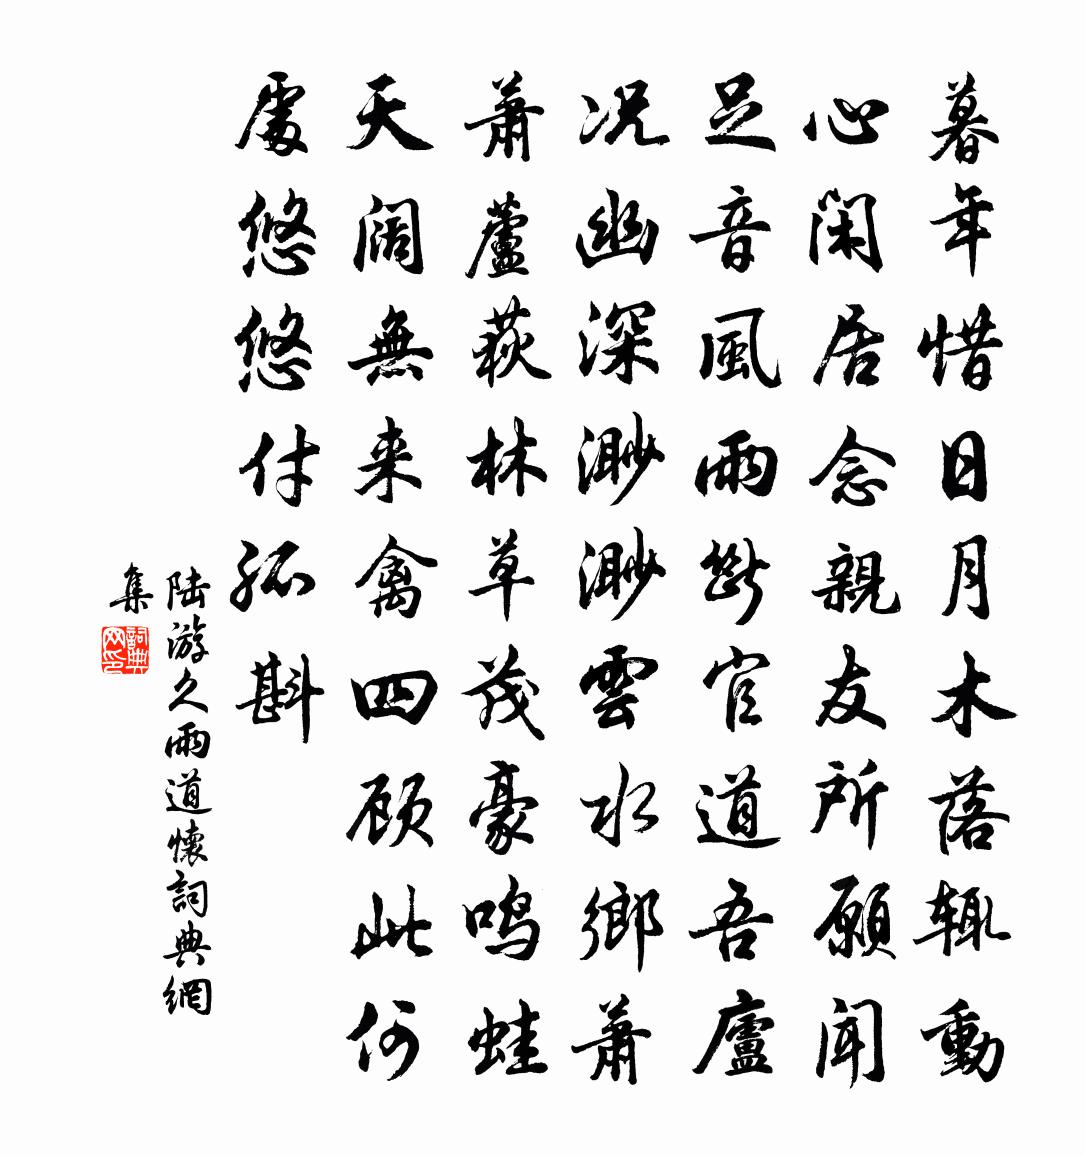 暮年惜日月木落辄動
心闲居念親友所願闻
足音風雨斷官道吾廬
况幽深渺渺雲水鄉萧
萧蘆荻林草茂豪鸣蛙
天阔無来禽四顾此何
處悠悠付孤斟
陆游久雨道懷詞典網
集
詞典网印